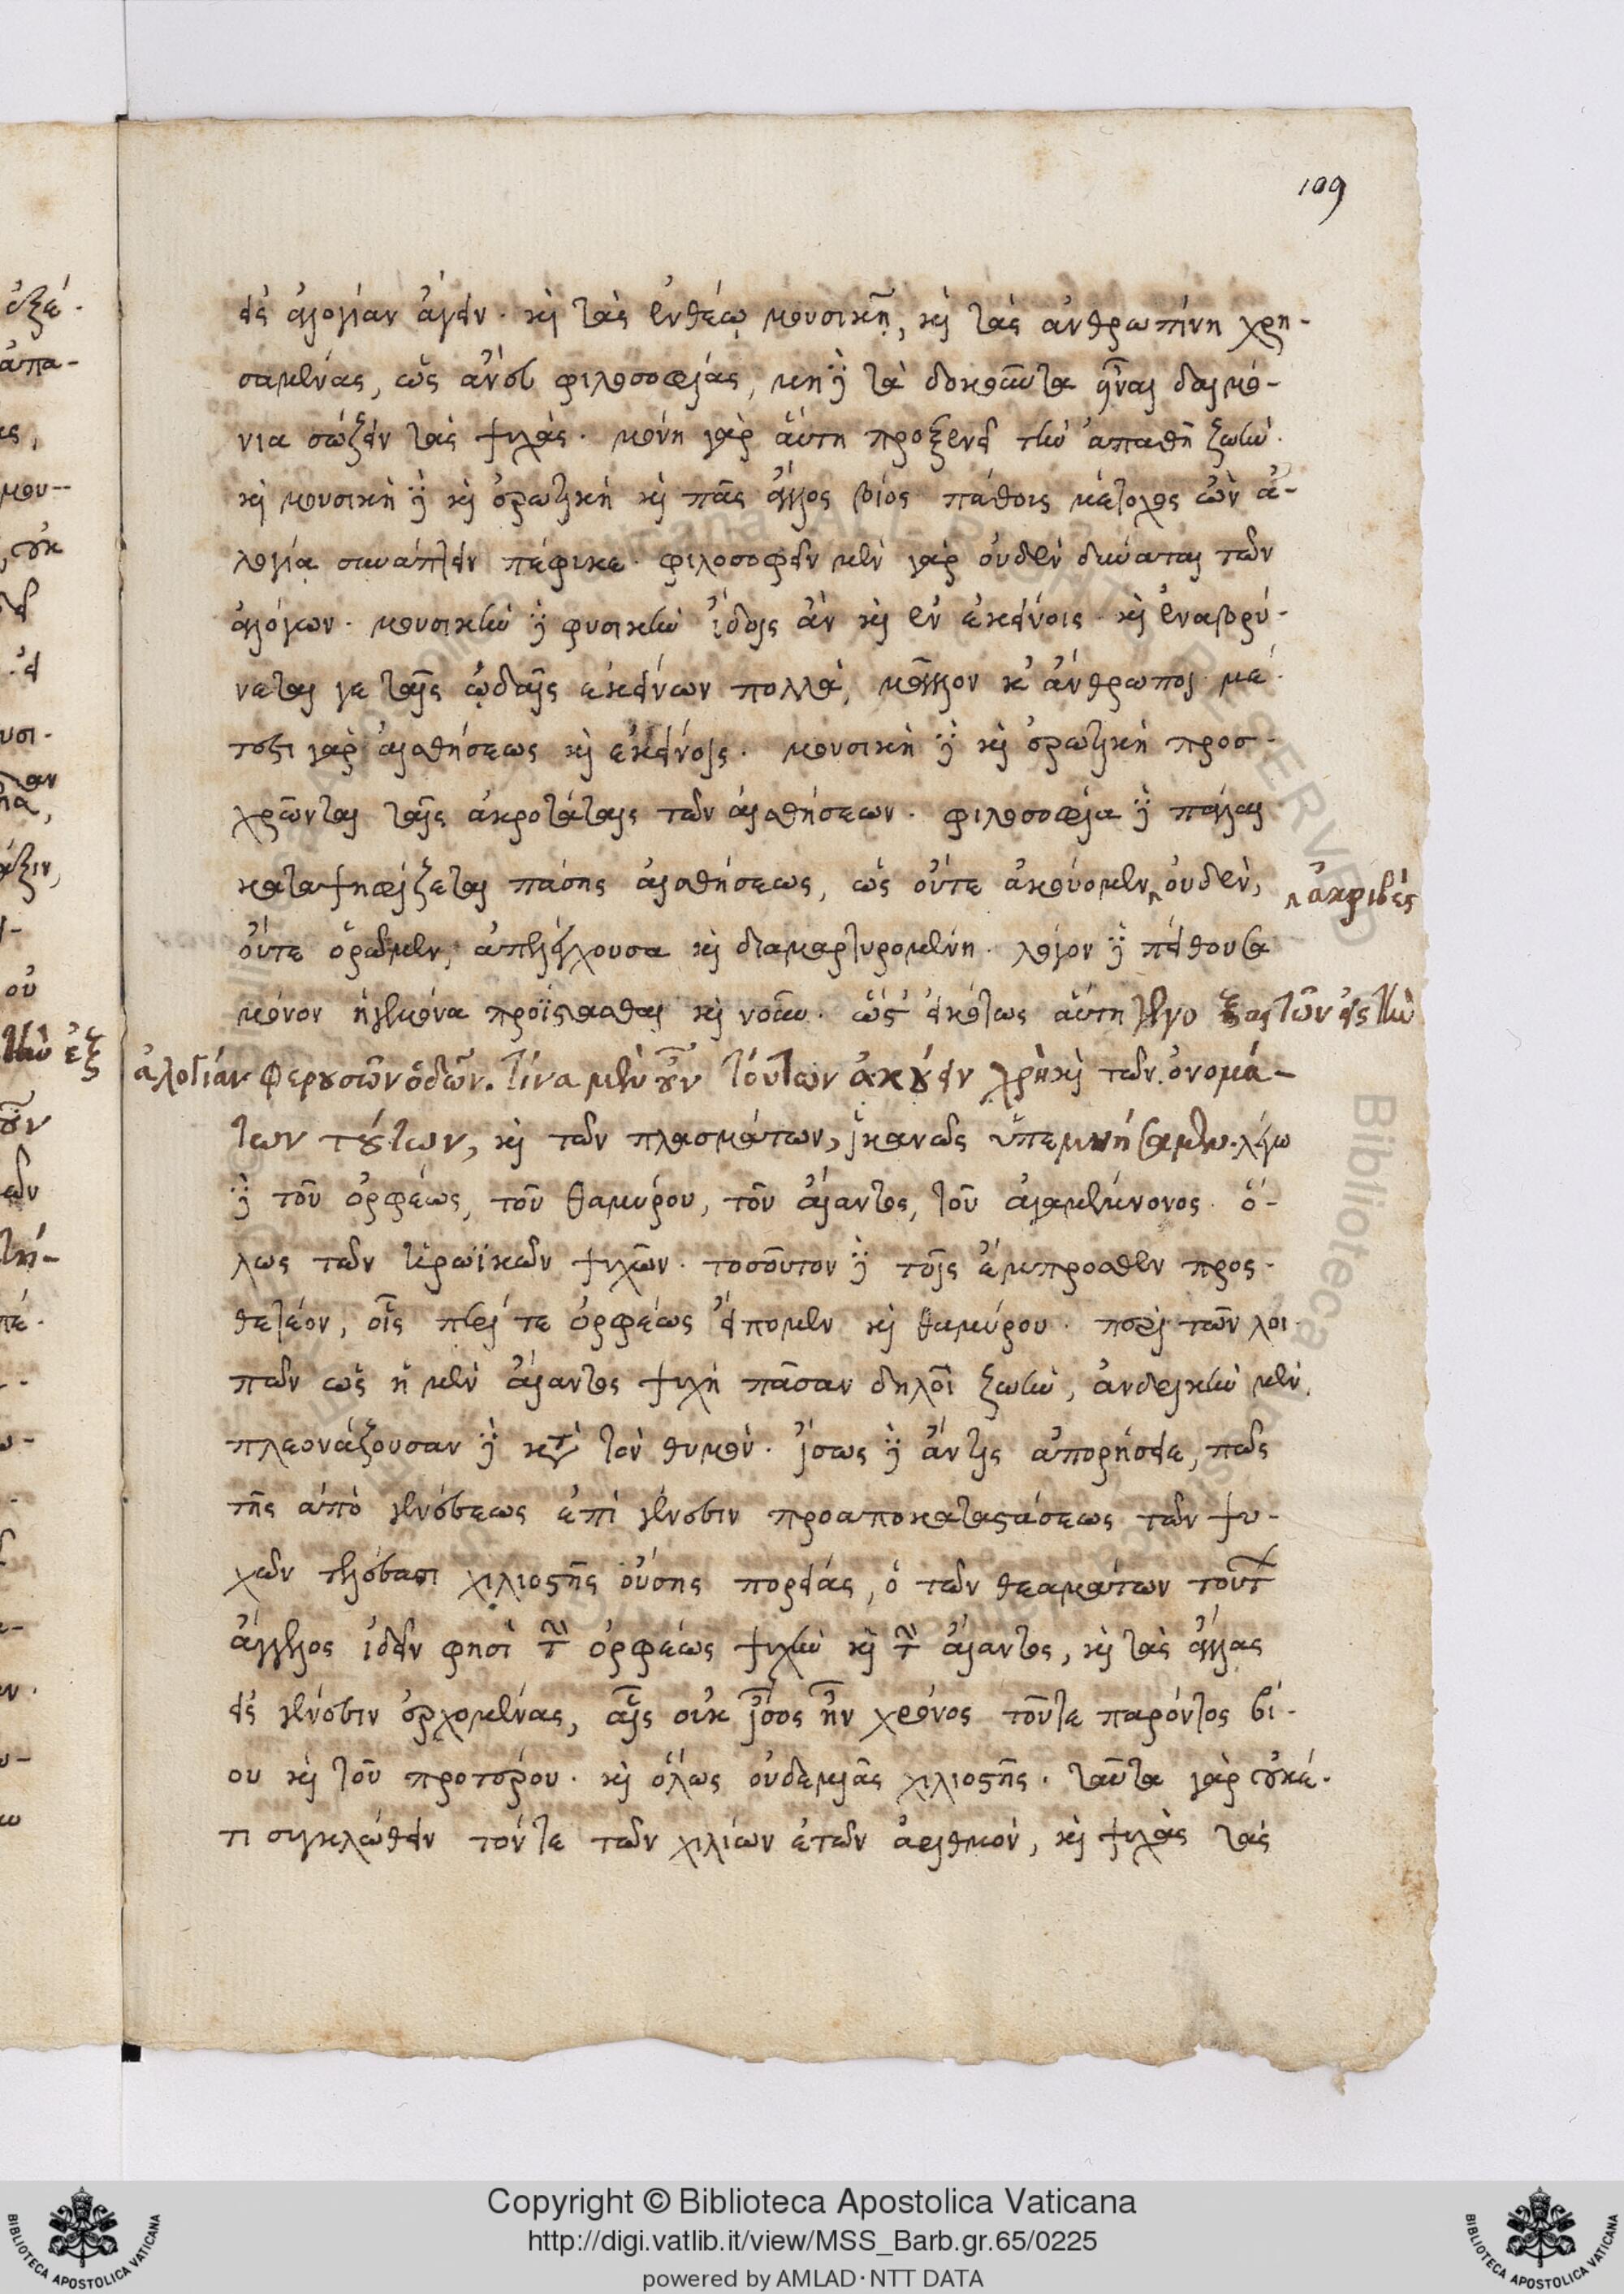 109
εἰς ἀλογίαν ἄγειν. καὶ τὰς ἐνθέῳ μουσικῇ, καὶ τὰς ἀνθρωπίνῃ χρη-
σαμένας, ὡς ἄνευ φιλοσοφίας, μὴ δὲ τὰ δοκοῦντα εἶναι δαιμό-
νια σώζειν τὰς ψυχάς. μόνη γὰρ αὕτη προξενεῖ τὴν ἀπαθῆ ζωήν.
καὶ μουσικὴ δὲ καὶ ἐρωτικὴ καὶ πᾶς ἄλλος βίος πάθοις κάτοχος ὢν ἀ-
λογίᾳ συνάπτειν πέφυκε. φιλοσοφεῖν μὲν γὰρ οὐδὲν δύναται τῶν
ἀλόγων. μουσικὴν δὲ φυσικὴν ἴδοις ἂν καὶ ἐν ἐκείνοις. καὶ ἐναβρύ-
νεται γε ταῖς ᾠδαῖς ἐκείνων πολλὰ, μᾶλλον κ' ἄνθρωποι. μέ-
τεστι γὰρ αἰσθήσεως καὶ ἐκείνοις. μουσικὴ δὲ καὶ ἐρωτικὴ προσ-
χρῶνται ταῖς ἀκροτάταις τῶν αἰσθήσεων. φιλοσοφία δὲ πάλαι
καταψηφίζεται πάσης αἰσθήσεως, ὡς οὔτε ἀκούομεν οὐδὲν,
ἀκριβὲς
οὔτε ὁρῶμεν, ἀπελέγχουσα καὶ διαμαρτυρομένη. λόγον δὲ πείθουσα
μόνον ἡγεμόνα προΐστασθαι καὶ νοῦν. ὥστ' εἰκότως αὕτη ξαι τῶν εἰς τὴν
ἀλογίαν φερουσῶν ὁδῶν. τίνα μὲν οὖν τούτων ἀκούειν χρὴ καὶ τῶν ὀνομά-
των τούτων, καὶ τῶν πλασμάτων, ἱκανῶς ὑπεμνήσαμεν. λέγω
δὲ τοῦ ὀρφέως, τοῦ θαμύρου, τοῦ αἴαντος, τοῦ ἀγαμέμνονος. ὅ-
λως τῶν ἱερωϊκῶν ψυχῶν. τοσοῦτον δὲ τοῖς ἔμπροσθεν προς-
θετέον, οἷς περί τε ὀρφέως εἴπομεν καὶ θαμύρου. περὶ τῶν λοι-
πῶν ὡς ἡ μὲν αἴαντος ψυχὴ πᾶσαν δηλοῖ ζωὴν, ἀνδρικὴν μὲν,
πλεονάζουσαν δὲ κατὰ τὸν θυμόν. ἴσως δὲ ἄν τις ἀπορήσειε, πῶς
τῆς ἀπὸ γενέσεως ἐπὶ γένεσιν προαποκαταστάσεως τῶν ψυ-
χῶν χιλιοστῆς οὔσης πορείας, ὁ τῶν θεαμάτων τούτων
ἄγγελος ἰδεῖν φησὶ τὴν ὀρφέως ψυχὴν καὶ τὴν αἴαντος, καὶ τὰς ἄλλας
εἰς γένεσιν ἐρχομένας, αἷς οὐκ ἴσος ἦν χρόνος τοῦτε παρόντος βί-
ου καὶ τοῦ προτέρου. καὶ ὅλως οὐδεμιᾶς χιλιοστῆς. ταῦτα γὰρ οὐκέ-
τι συγκλώθειν τόν τε τῶν χιλίων ἐτῶν ἀριθμὸν, καὶ ψυχὰς τὰς
Copyright © Biblioteca Apostolica Vaticana
http://digi.vatlib.it/view/MSS_Barb.gr.65/0225
powered by AMLAD·NTT DATA